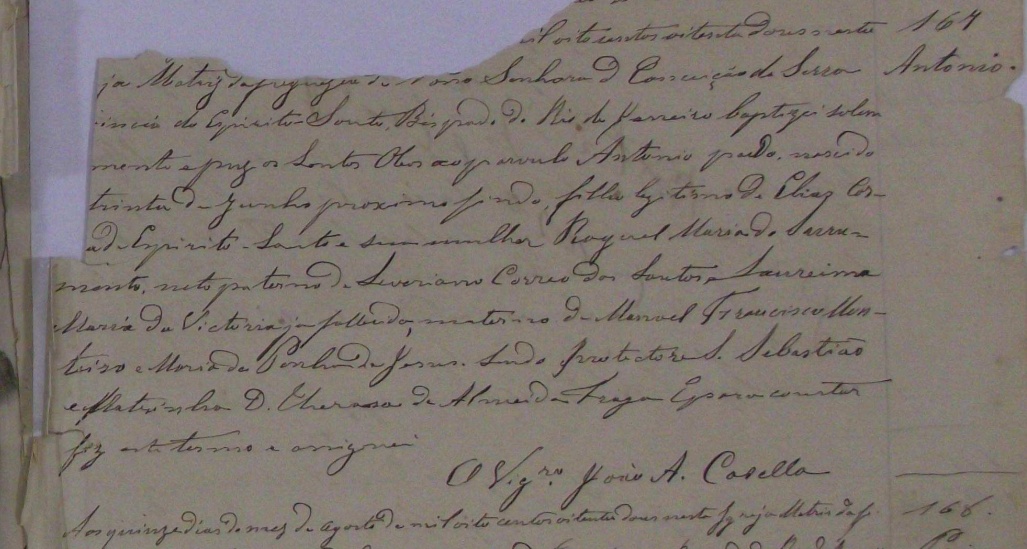 mil oito centos oitenta dous neste
ja Matriz da freguezia de Nossa Senhora d Conceição da Serra
incia do Espirito-Santo, Bispado do Rio de Janeiro baptizei solem
mente e puz os Santos Oleos ao parvulo Antonio pardo, nascido
trinta de Junho proximo findo, filho legitimo de Elias Cor-
a do Espirito-Santo e sua mulher Raquel Maria do Sacra-
mento, neto paterno de Severiano Correa dos Santos e
Maria da Victoria ja fallecida, materno de Manoel Francisco Mon-
teiro e Maria da Penha de Jesus. Sendo protector S. Sebastião
e Madrinha D. Thereza de Almeida Fraga E para constar
fiz este termo e assignei
O Vigro. João A. Casella
167
Antonio.
Aos quinze dias do mez de agosto de mil oito centos oitenta dous nesta Igreja Matriz da f.
168.